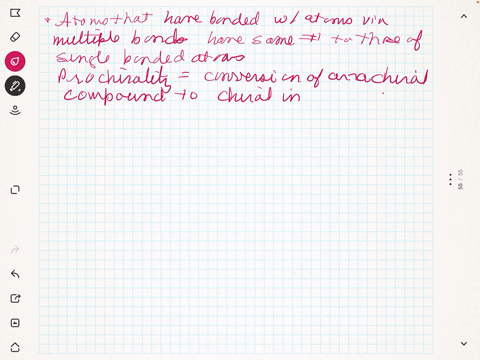 * Atoms that have bonded w/ atoms via
multiple bonds have same # to those of
single bonded atoms
Prochirality = conversion of an achiral
compound to chiral in
55 / 55